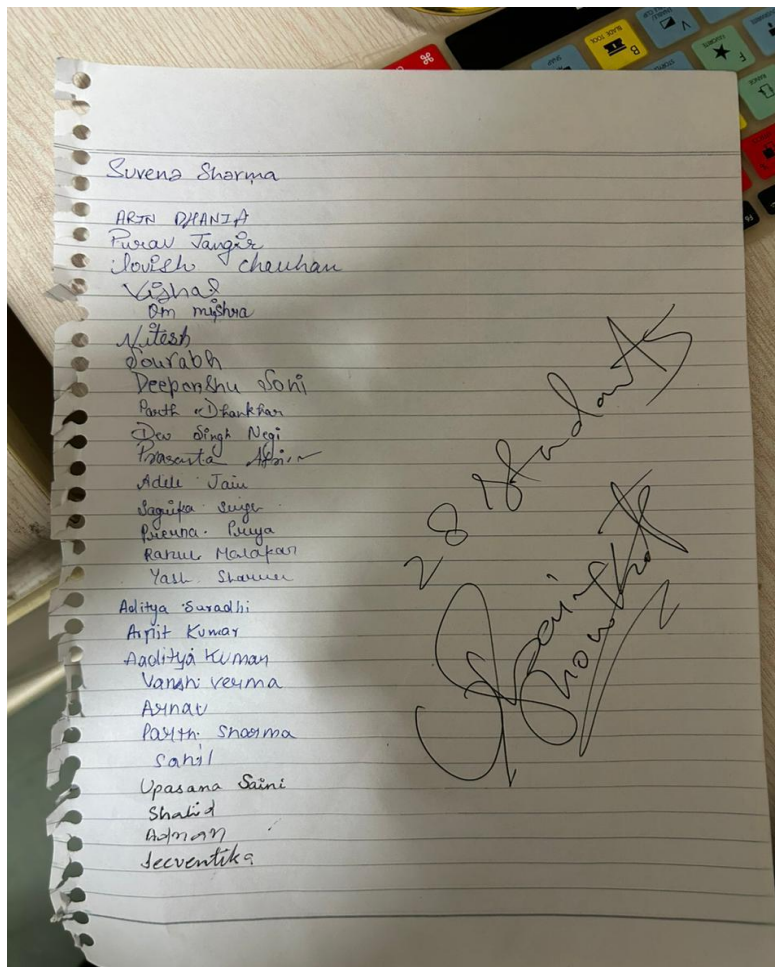 Suvena Sharma
ARJN DHANIA
Purav Jangir
lovish chauhan
Vishal
Om mishra
Nitesh
Sourabh
Deepanshu Soni
Parth Dhankhar
Dev Singh Negi
Prasanta
Jain
Prerna. Priya
Rahul Malakar
Yash Sharma
Aditya Suradhi
Arpit Kumar
Aaditya Kumar
Vansh verma
Arnav
Parth Sharma
Sahil
Upasana Saini
Shahid
Adnan
28 Students